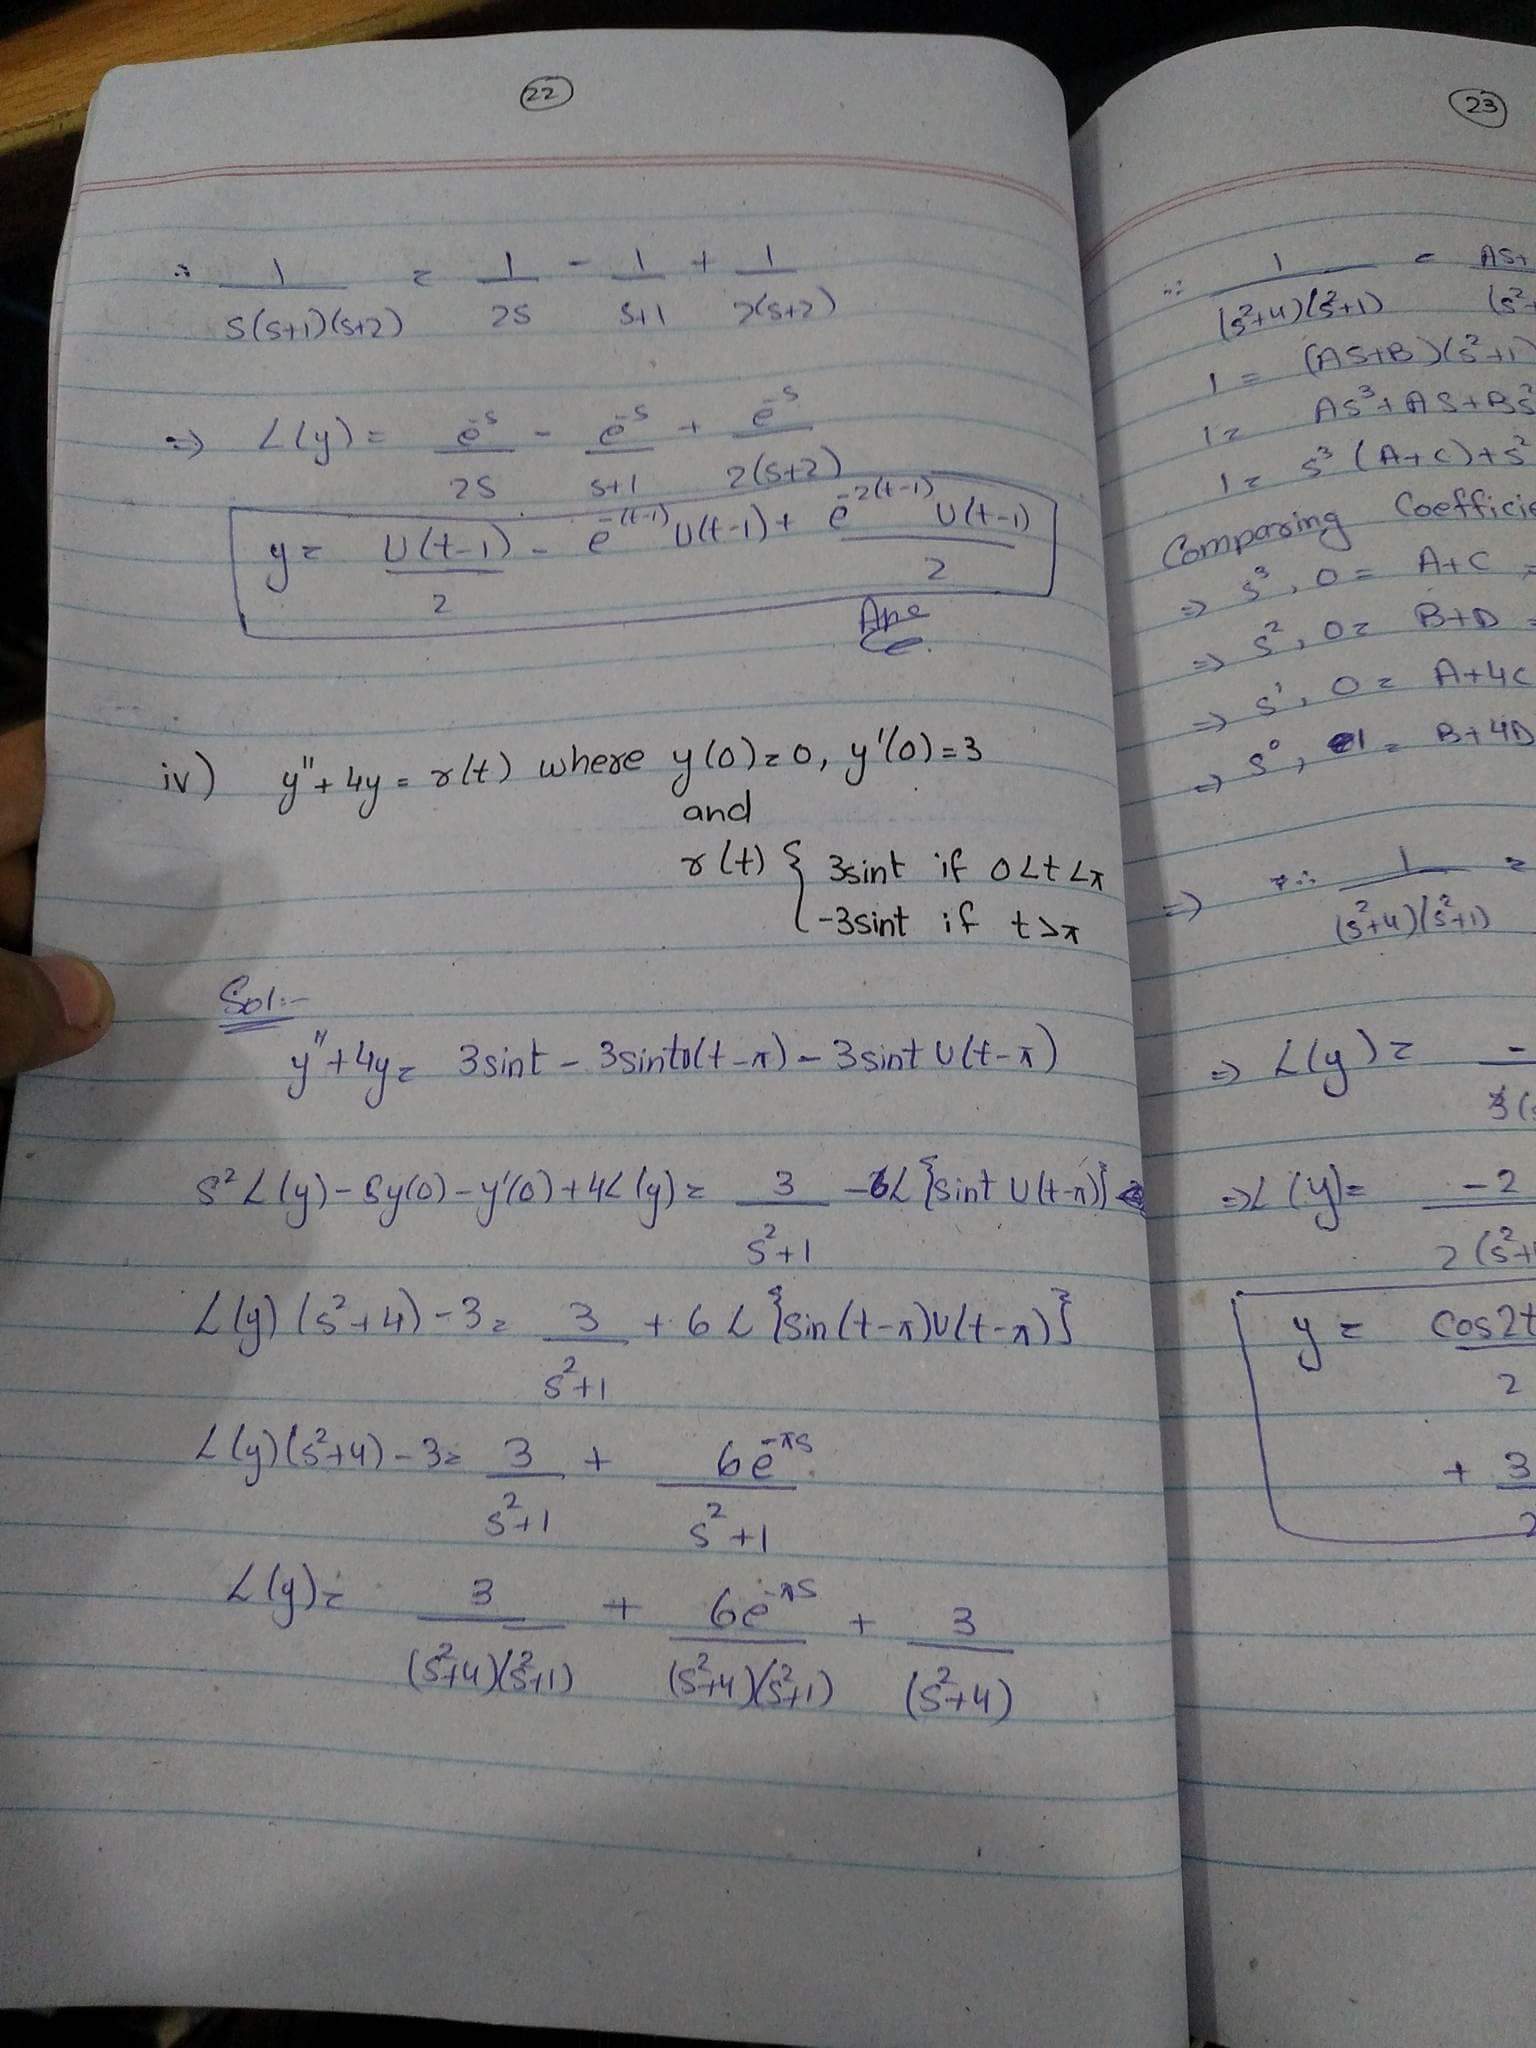 22
∴ 1/(s(s+1)(s+2)) = 1/2s - 1/(s+1) + 1/(2(s+2))
=> L(y) = e^-s/2s - e^-s/(s+1) + e^-s/(2(s+2))
y = U(t-1)/2 - e^-(t-1) U(t-1) + e^-2(t-1) U(t-1)/2
Ans
iv) y" + 4y = r(t) where y(0) = 0, y'(0) = 3
and
r(t) { 3sint if 0<t<π
-3sint if t>π
Sol:-
y" + 4y = 3sint - 3sintU(t-π) - 3sint U(t-π)
s² L(y) - sy(0) - y'(0) + 4L(y) = 3/(s²+1) - 6L{sint U(t-π)}
L(y) (s²+4) - 3 = 3/(s²+1) + 6 L{sin(t-π)U(t-π)}
L(y)(s²+4) - 3 = 3/(s²+1) + 6e^-πs/(s²+1)
L(y) = 3/((s²+4)(s²+1)) + 6e^-πs/((s²+4)(s²+1)) + 3/(s²+4)
23
∴ 1/((s²+4)(s²+1)) = As+ / (s²+
1 = (As+B)(s²+1)
1 = As³+As+Bs²
1 = s³(A+C)+s²
Comparing Coefficie
=> s³, 0 = A+C =
=> s², 0 = B+D =
=> s¹, 0 = A+4C
=> s⁰, 1 = B+4D
=> ∴ 1/((s²+4)(s²+1)) =
=> L(y) = -
=> L(y) = -2/2(s²+
y = cos2t/2
+ 3/2